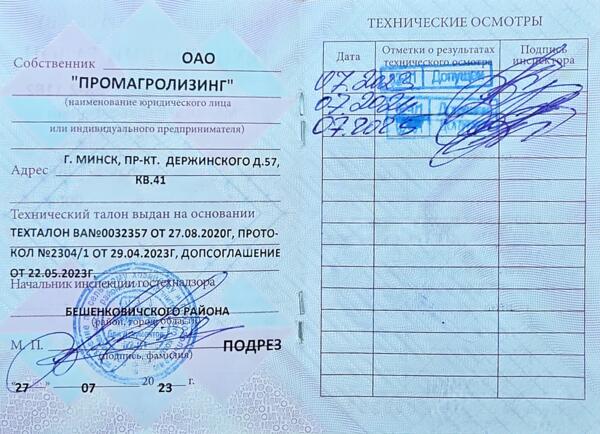 Собственник ОАО
"ПРОМАГРОЛИЗИНГ"
(наименование юридического лица
или индивидуального предпринимателя)
Адрес Г. МИНСК, ПР-КТ. ДЕРЖИНСКОГО Д.57,
КВ.41
Технический талон выдан на основании
ТЕХТАЛОН ВА№0032357 ОТ 27.08.2020Г, ПРОТО-
КОЛ №2304/1 ОТ 29.04.2023Г, ДОПСОГЛАШЕНИЕ
ОТ 22.05.2023Г.
Начальник инспекции гостехнадзора
БЕШЕНКОВИЧСКОГО РАЙОНА
(район, город, область)
М. П. ПОДРЕЗ
(подпись, фамилия)
"27" 07 2023 г.
ТЕХНИЧЕСКИЕ ОСМОТРЫ
Дата Отметки о результатах технического осмотра Подпись инспектора
07.2023 Допущен
07.2024
07.2025